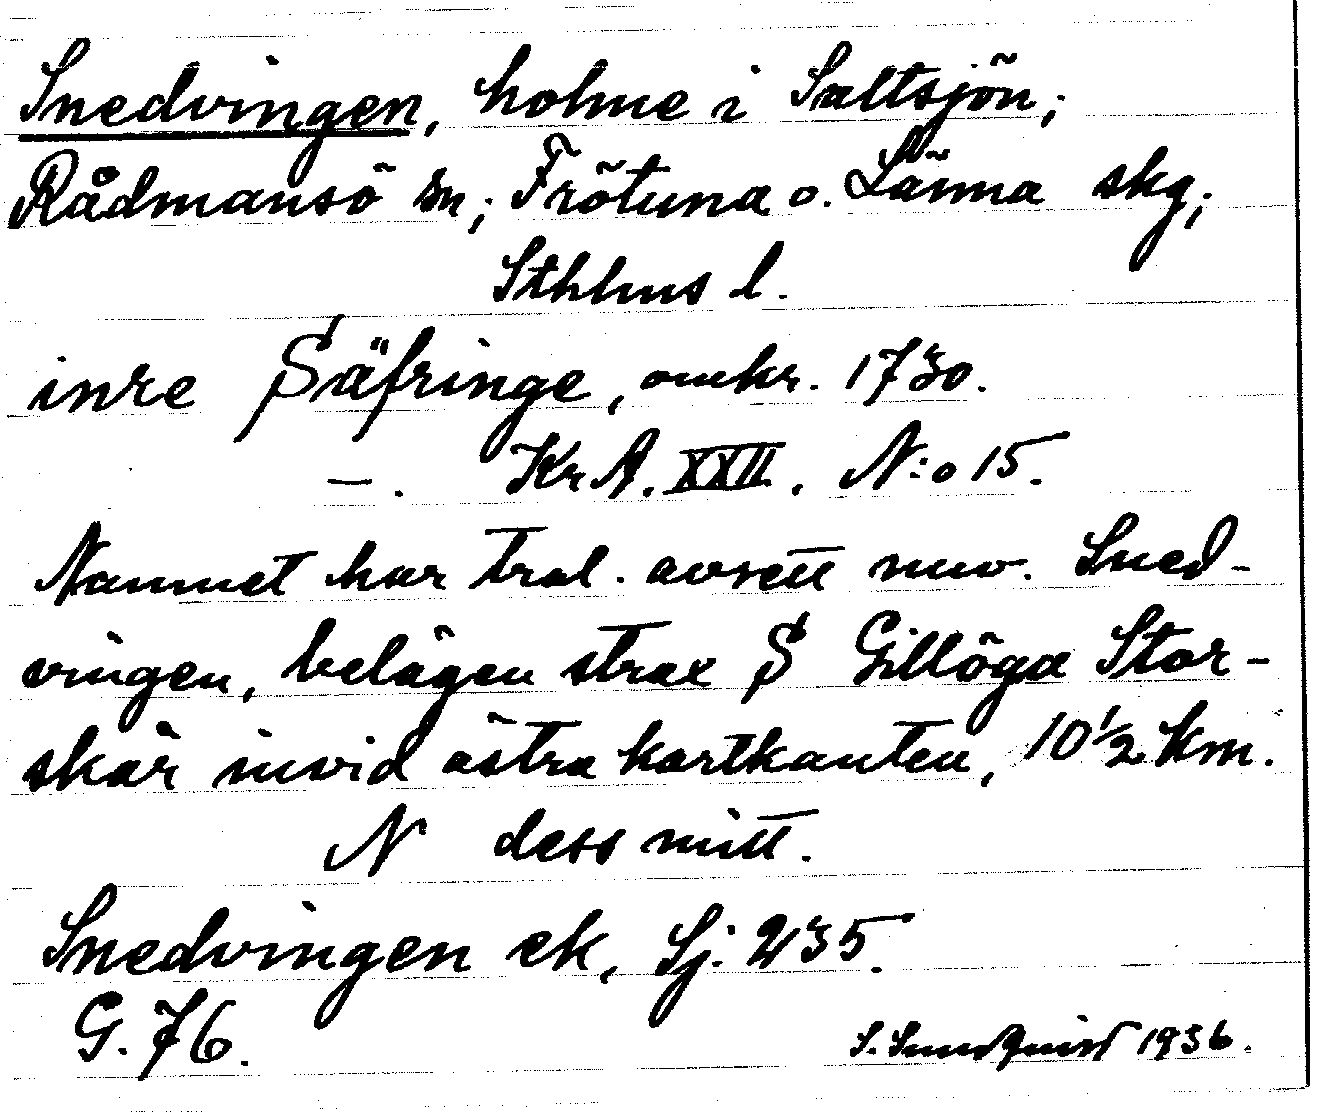 Snedvingen, holme i Saltsjön;
Rådmansö sn; Frötuna o. Länna skg;
Sthlms l.
inre Säfringe, omkr. 1730.
—. Kr A. XXII. N:o 15.
Namnet har trol. avsett nuv. Sned-
vingen, belägen strax S Gillöga Stor-
skär invid östra kartkanten, 10 1/2 km.
N dess mitt.
Snedvingen ek, Sj: 235.
G. 76.
S. Sundquist 1936.